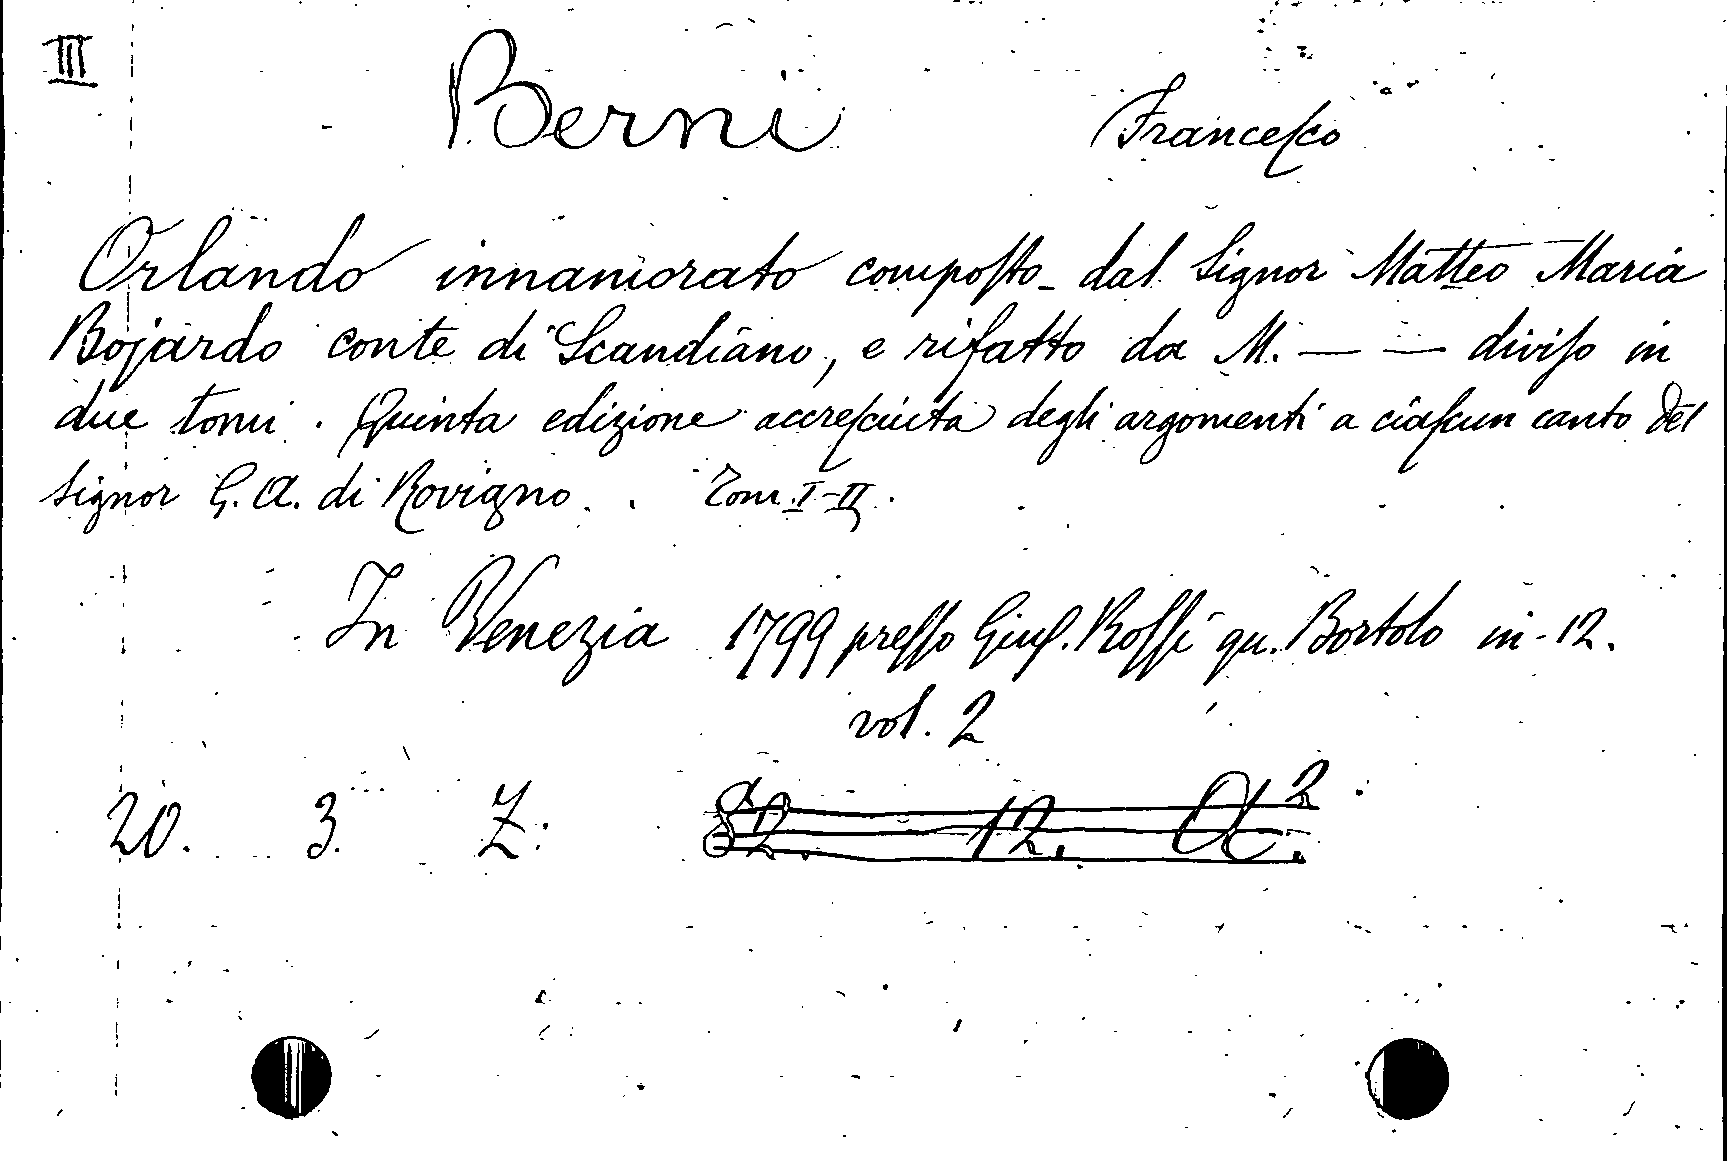 III
Berni Francesco
Orlando innamorato composto dal Signor Matteo Maria
Bojardo conte di Scandiano, e rifatto da M. — — diviso in
due tomi. Quinta edizione accresciuta degli argomenti a ciascun canto del
Signor G. A. di Rovigno. Tom. I-II.
In Venezia 1799 presso Gius. Rossi qu. Bortolo in-12.
vol. 2
20. 3. Z. 82. 12. A.²